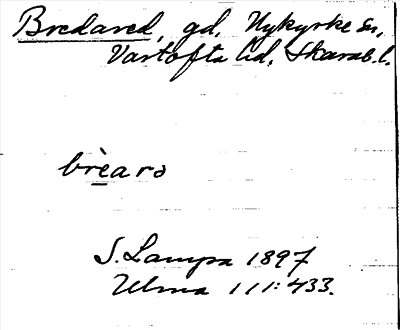 Bredared, gd, Nykyrke sn,
Vartofta hd, Skarab. l.
brèaro
S. Lampa 1897
Ulma 111:433.